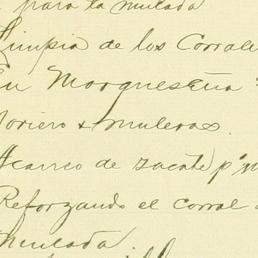 para la mulada
Limpia de los Corrale
En Marqueseña
Toriero & muleros.
Acarreo de zacate p'
Reforzando el corral
mulada